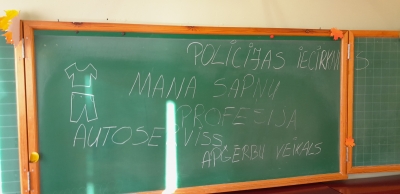 POLĪCIJAS IECIRKNIS
MANA SAPŅU
PROFESIJA
AUTOSERVISS
APĢĒRBU VEIKALS